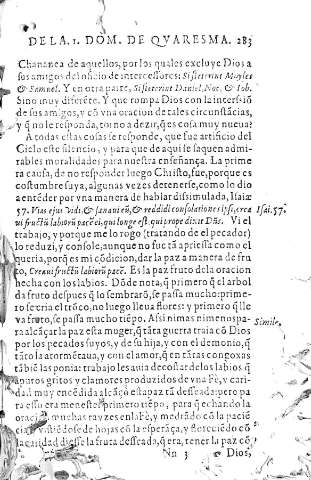 DE LA .1. DOM. DE QVARESMA. 283
Chananea de aquellos, por los quales excluye Dios a
sus amigos del oficio de intercessores: Si steterint Moyses
& Samuel. Y en otra parte, Si steterint Daniel, Noe, & Iob.
Sino muy diferẽte. Y que rompa Dios con la intersiõ
de sus amigos, y cõ vna oracion de tales circunstãcias,
y q̃ no le responda, torno a dezir, q̃ es cosa muy nueua?
A todas estas cosas se responde, que fue artificio del
Cielo este silencio, y para que de aqui se saquen admi
rables moralidades para nuestra enseñança. La prime
ra causa, de no responder luego Christo, fue, porque es
costumbre suya, algunas vezes detenerse, como lo dio
a entẽder por vna manera de hablar dissimulada, Isaiæ
57. Vias eius vidi, & sanaui eũ, & reddidi consolationes ipsi, creaui
Isai. 57.
fructũ labiorũ pacẽ, qui longe est, qui prope dixit Dñs. Vi el
trabajo, y porque me lo rogo (tratando de el pecador)
lo reduzi, y console, aunque no fue tã apriessa como el
queria, porq̃ es mi cõdicion, dar la paz a manera de fru
to, Creaui fructũ labiorũ pacẽ. Es la paz fruto de la oracion
hecha con los labios. Dõde nota, q̃ primero q̃ el arbol
da fruto despues q̃ lo sembrarõ, se passa mucho: prime-
ro se cria el trõco, no luego lleua flores: y primero q̃ lle
va fruto, se passa mucho tiẽpo. Assi ni mas ni menos pa-
Simile.
ra alcãçar la paz esta muger, q̃ tãta guerra traia cõ Dios
por los pecados suyos, y de su hija, y con el demonio, q̃
tãto la atormẽtaua, y con el amor, q̃ en tãtas congoxas
tãbiẽ las ponia: trabajo les auia de costar de los labios q̃
apuros gritos y clamores produzidos de vna Fè, y cari-
dad muy encẽdida alcãçò esta paz tã desseada: pero pa
ra esso era menester primero tiẽpo, para q̃ echando la
oraciõ muchas rayzes en la Fè, y medrãdo cõ la paciẽ
cia, y vistiẽdose de hojas cõ la esperãça, y floreciẽdo cõ
la caridad diesse la fruta desseada, q̃ era, tener la paz cõ
Nn 3 Dios,